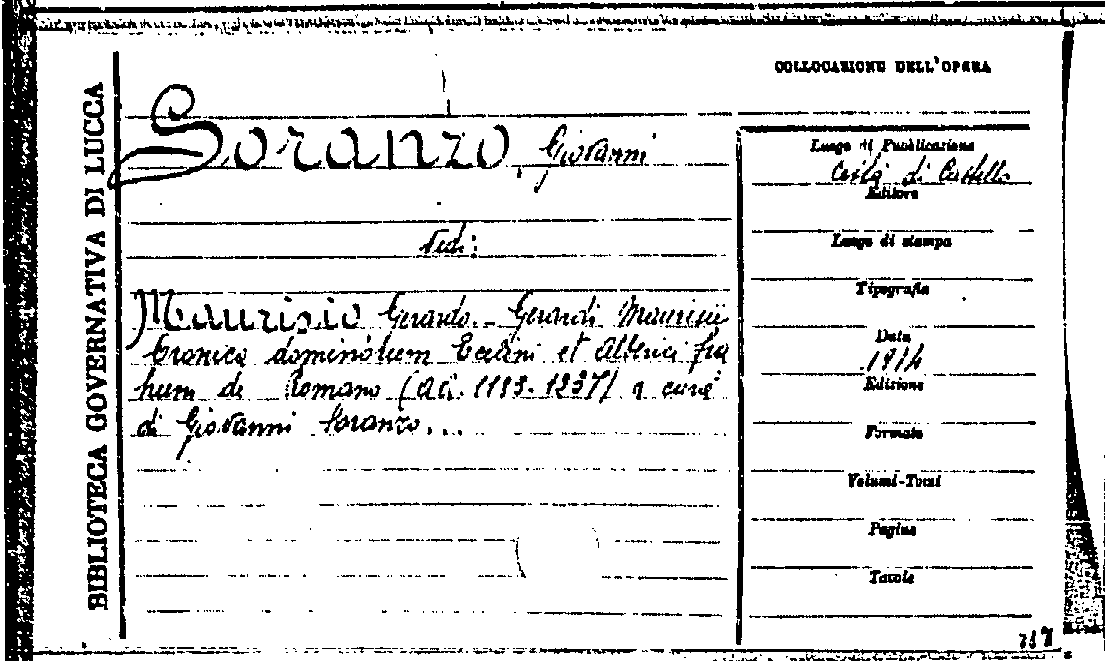 BIBLIOTECA GOVERNATIVA DI LUCCA
Soranzo, Giovanni
Vedi:
Maurisio Gerardo. - Gerardi Maurisii
Cronica dominorum Ecelini et Alberici fra
trum de Romano (aa. 1183-1237) a cura
di Giovanni Soranzo...
COLLOCAZIONE DELL'OPERA
Luogo di Pubblicazione
Città di Castello
Editore
Luogo di stampa
Tipografia
Data
1914
Edizione
Formato
Volumi-Tomi
Pagine
Tavole